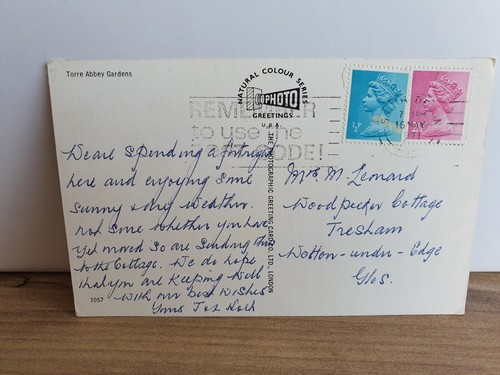 Torre Abbey Gardens
NATURAL COLOUR SERIES
PHOTO
GREETINGS
REMEMBER
to use the
CODE!
THE PHOTOGRAPHIC GREETING CARD CO. LTD., LONDON
16 MY
½P
We are spending a fortnight
here and enjoying some
sunny & dry weather.
Not sure whether you have
yet moved so are sending this
to the Cottage. We do hope
that you are keeping well
with our best wishes
Yours
1057
Mrs M. Leonard
Woodpecker Cottage
Tresham
Wotton-under-Edge
Glos.